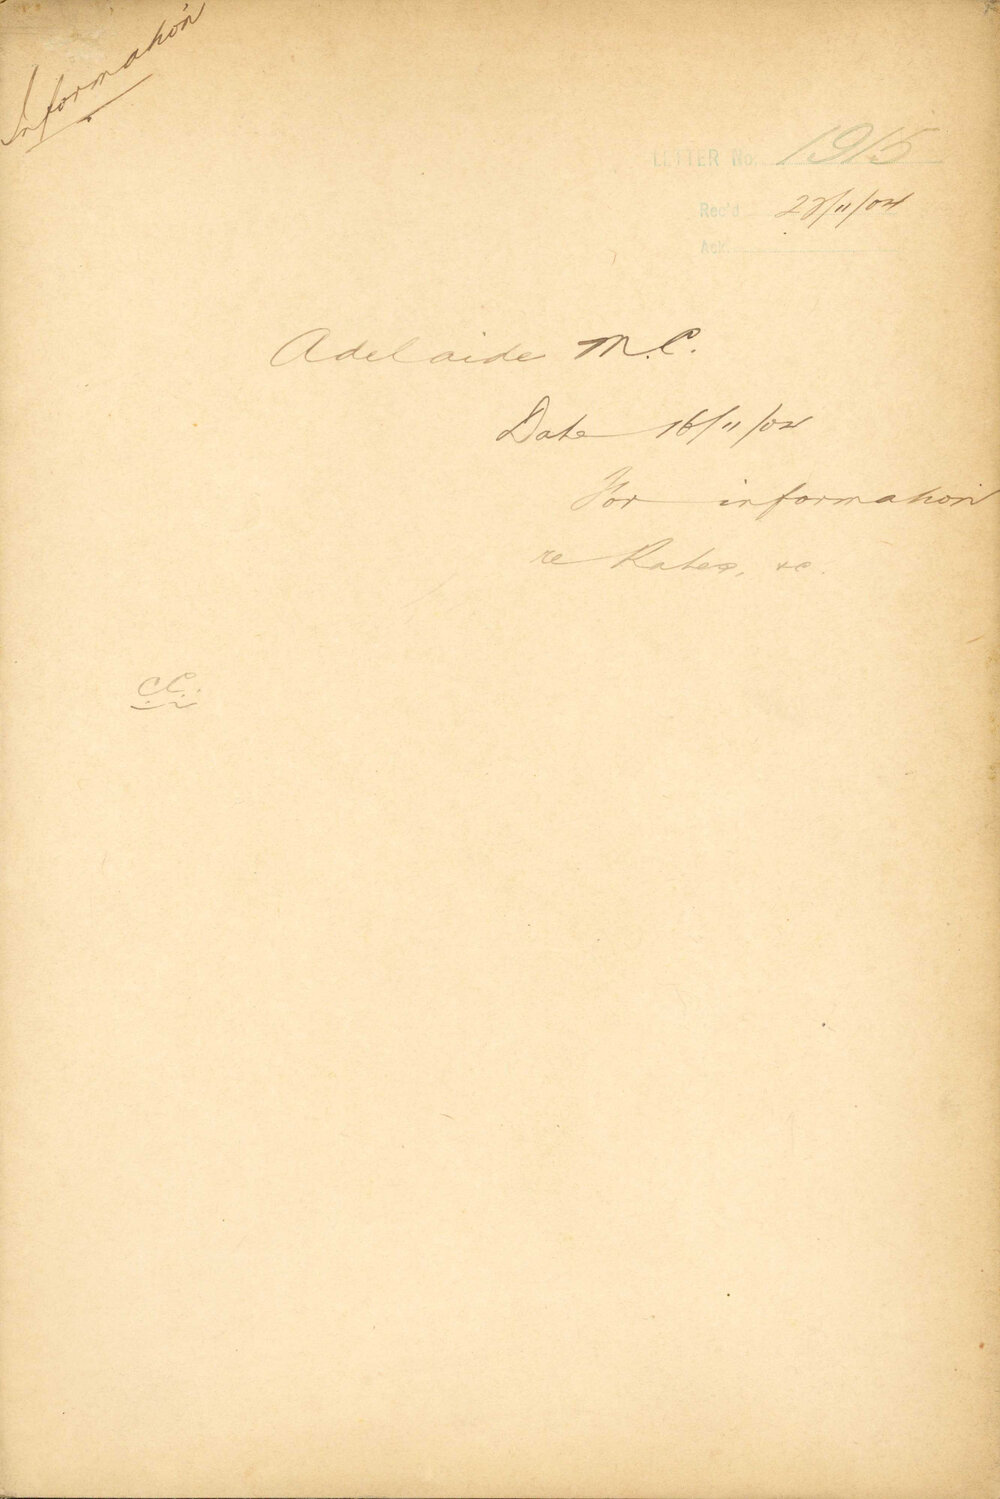 Information
LETTER No. 1915
Rec'd 22/11/04
Ack.
Adelaide M.C.
Date 16/11/04
For information
re Rates, &c.
C.C.